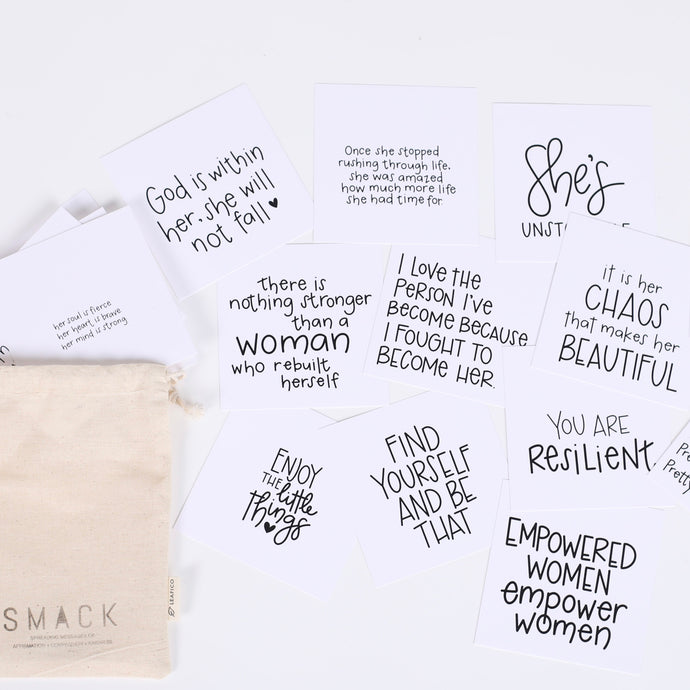 God is within
her, she will
not fall
Once she stopped
rushing through life,
she was amazed
how much more life
she had time for.
She's
her soul is fierce
her heart is brave
her mind is strong
there is
nothing stronger
than a
woman
who rebuilt
herself
I LOVE THE
PERSON I'VE
BECOME BECAUSE
I FOUGHT TO
BECOME HER.
it is her
CHAOS
that makes her
BEAUTIFUL
ENJOY
THE little
things
FIND
YOURSELF
AND BE
THAT
YOU ARE
RESILIENT
Pretty
EMPOWERED
WOMEN
empower
women
SMACK
SPREADING MESSAGES OF
AFFIRMATION + COMPASSION + KINDNESS
LEAFICO